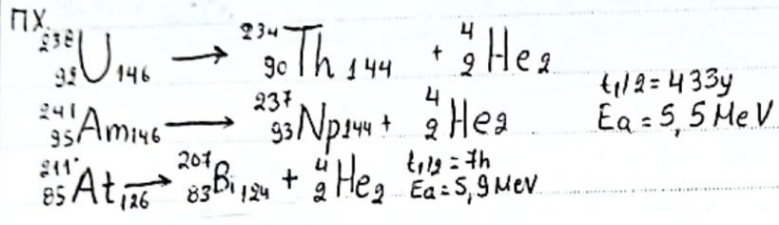 ПХ.
²³⁸₉₂U₁₄₆ → ²³⁴₉₀Th₁₄₄ + ⁴₂He₂
²⁴¹₉₅Am₁₄₆ → ²³⁷₉₃Np₁₄₄ + ⁴₂He₂ t₁/2 = 433y Eα = 5,5 MeV
²¹¹₈₅At₁₂₆ → ²⁰⁷₈₃Bi₁₂₄ + ⁴₂He₂ t₁/2 = 7h Eα = 5,9 MeV